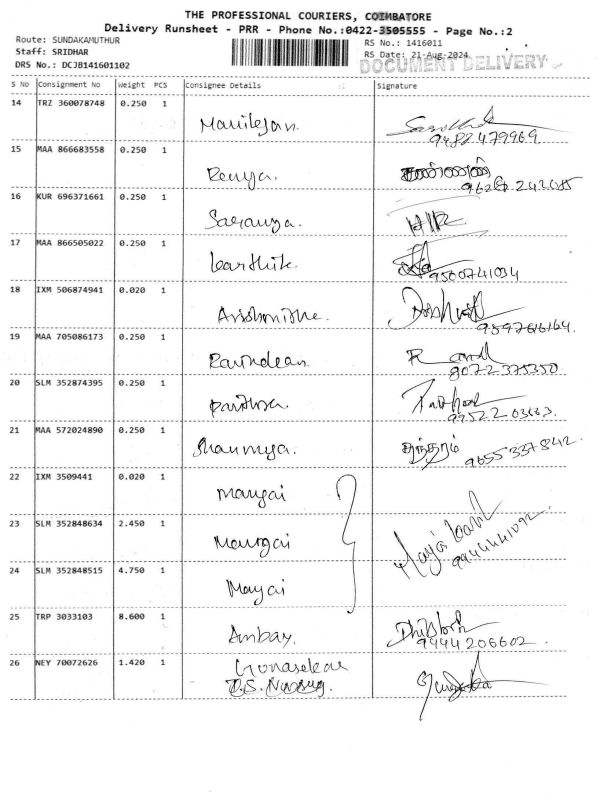 THE PROFESSIONAL COURIERS, COIMBATORE
Delivery Runsheet - PRR - Phone No.:0422-3505555 - Page No.:2
Route: SUNDAKAMUTHUR
RS No.: 1416011
Staff: SRIDHAR
RS Date: 21-Aug-2024
DRS No.: DCJB141601102
DOCUMENT DELIVERY
S No Consignment No Weight PCS Consignee Details Signature
14 TRZ 360078748 0.250 1
Manilesan.
9482479969
15 MAA 866683558 0.250 1
Renya.
16 KUR 696371661 0.250 1
Saranya.
17 MAA 866505022 0.250 1
Karthik.
9500741034
18 IXM 506874941 0.020 1
9597616164.
19 MAA 705086173 0.250 1
Ravindran.
8072375350
20 SLM 352874395 0.250 1
Pavithra.
21 MAA 572024890 0.250 1
Shanmuga.
9655337842
22 IXM 3509441 0.020 1
Mangai
23 SLM 352848634 2.450 1
Mangai
24 SLM 352848515 4.750 1
Mangai
25 TRP 3033103 8.600 1
Ambay.
9444206602.
26 NEY 70072626 1.420 1
Gunasekar